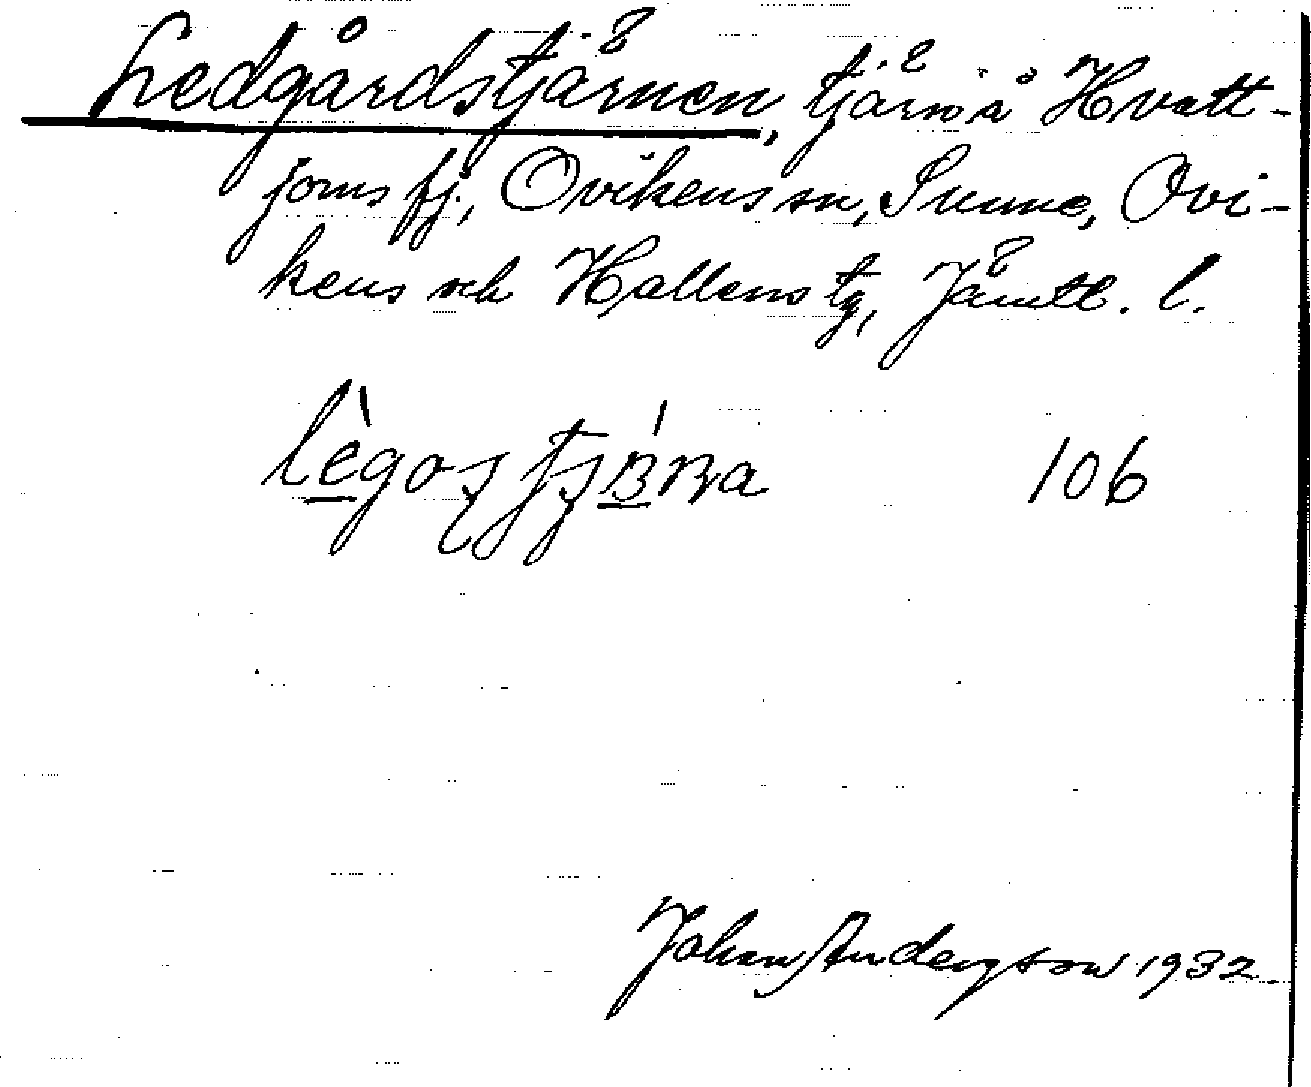 Ledgårdstjärnen, tjärn å Hvatt-
joms fj., Ovikens sn, Sunne, Ovi-
kens och Hallens tg, Jämtl. l.
106
Johan Anderzson 1932